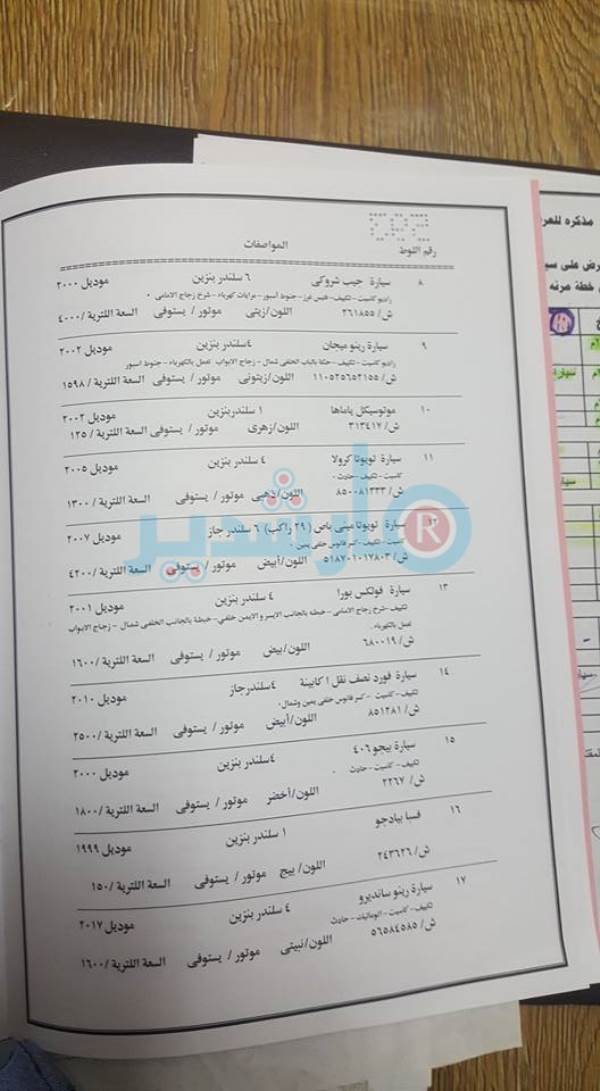 رقم اللوط
المواصفات
٨ سيارة جيب شروكى ٦ سلندر بنزين موديل ٢٠٠٠
راديو كاسيت - تكييف - فتيس غرز - جنوط اسبور - مرايات كهرباء - شرخ زجاج الامامى ٠
ش/ ٢٦١٨٥٥ اللون/زيتى موتور/ يستوفى السعة اللترية /٤٠٠٠
٩ سيارة رينو ميجان ٤سلندر بنزين موديل ٢٠٠٢
راديو كاسيت - تكييف - حكة بالباب الخلفى شمال - زجاج الابواب تعمل بالكهرباء - جنوط اسبور
ش/ ١١٠٥٢٥٦٥٢١٥٥ اللون/ زيتونى موتور/ يستوفى السعة اللترية / ١٥٩٨
١٠ موتوسيكل ياماها ١ سلندربنزين موديل ٢٠٠٢
ش/ ٣١٣٤١٧ اللون/ زهرى موتور/ يستوفى السعة اللترية / ١٢٥
١١ سيارة تويوتا كرولا ٤ سلندر بنزين موديل ٢٠٠٥
كاسيت - تكييف - حادث ٠
ش/ ٨٥٠٠٨١٣٣٣ اللون/ ذهبى موتور/ يستوفى السعة اللترية / ١٣٠٠
١٢ سيارة تويوتا مينى باص (٢٩ راكب) ٦ سلندر جاز موديل ٢٠٠٧
كاسيت - تكييف - كسر فانوس خلفى يمين ٠
ش/ ٥١٨٧٠١٠١٧٨٠٣ اللون/ أبيض موتور/ يستوفى السعة اللترية / ٤٢٠٠
أرشدير ®
١٣ سيارة فولكس بورا ٤ سلندر بنزين موديل ٢٠٠١
تكييف -شرخ زجاج الامامى - خبطه بالجانب الايسر و الايمن خلفي- خبطة بالجانب الخلفى شمال - زجاج الابواب
تعمل بالكهرباء ٠
ش/ ٦٨٠٠١٩ اللون/ بيض موتور/ يستوفى السعة اللترية /١٦٠٠
١٤ سيارة فورد نصف نقل ١ كابينة ٤سلندرجاز موديل ٢٠١٠
تكييف - كاسيت - كسر فانوس خلفى يمين وشمال٠
ش/ ٨٥١٢٨١ اللون/ أبيض موتور/ يستوفى السعة اللترية /٢٥٠٠
١٥ سيارة بيجو ٤٠٦ ٤سلندر بنزين موديل ٢٠٠٠
تكييف - كاسيت - حادث ٠
ش/ ٢٢٦٧ اللون/أخضر موتور/ يستوفى السعة اللترية /١٨٠٠
١٦ فسبا بيادجو ١ سلندر بنزين موديل ١٩٩٩
ش/ ٢٤٣٦٢٦ اللون/ بيج موتور/ يستوفى السعة اللترية /١٥٠
١٧ سيارة رينو سانديرو ٤ سلندر بنزين موديل ٢٠١٧
تكييف - كاسيت - اتوماتيك - حادث
ش/ ٥٦٥٨٤٥٨٥ اللون/نبيتى موتور/ يستوفى السعة اللترية /١٦٠٠
مذكره للعر
رض على سي
خطة مرنه
سيارة